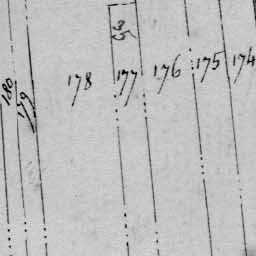 35
178 177 176 175 174
180
179